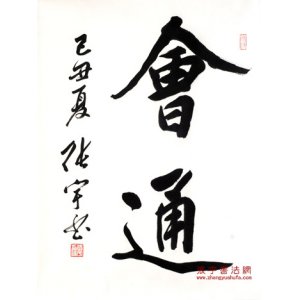 會通
己丑夏 張宇書
张宇书法网
www.zhangyushufa.com